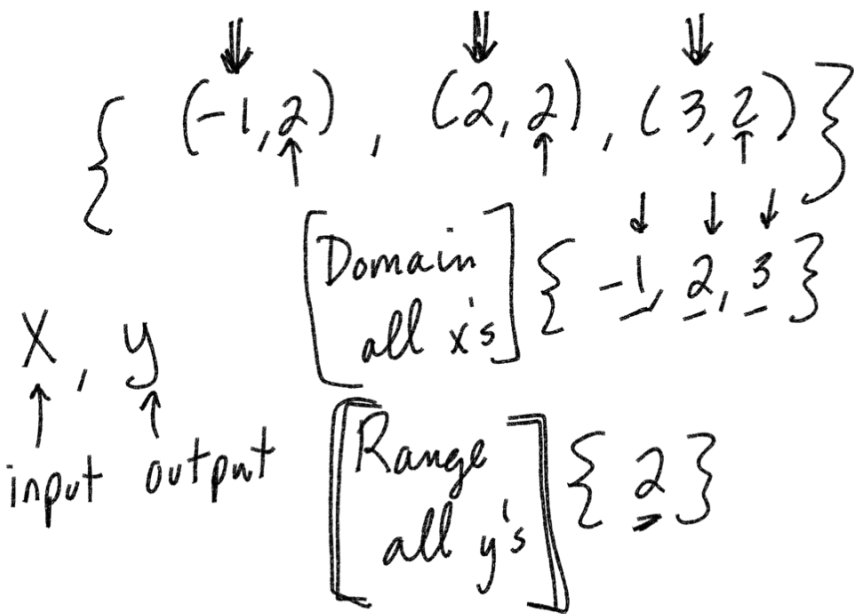 { (-1, 2) , (2, 2) , (3, 2) }
[Domain all x's] { -1, 2, 3 }
x , y
input output
[Range all y's] { 2 }